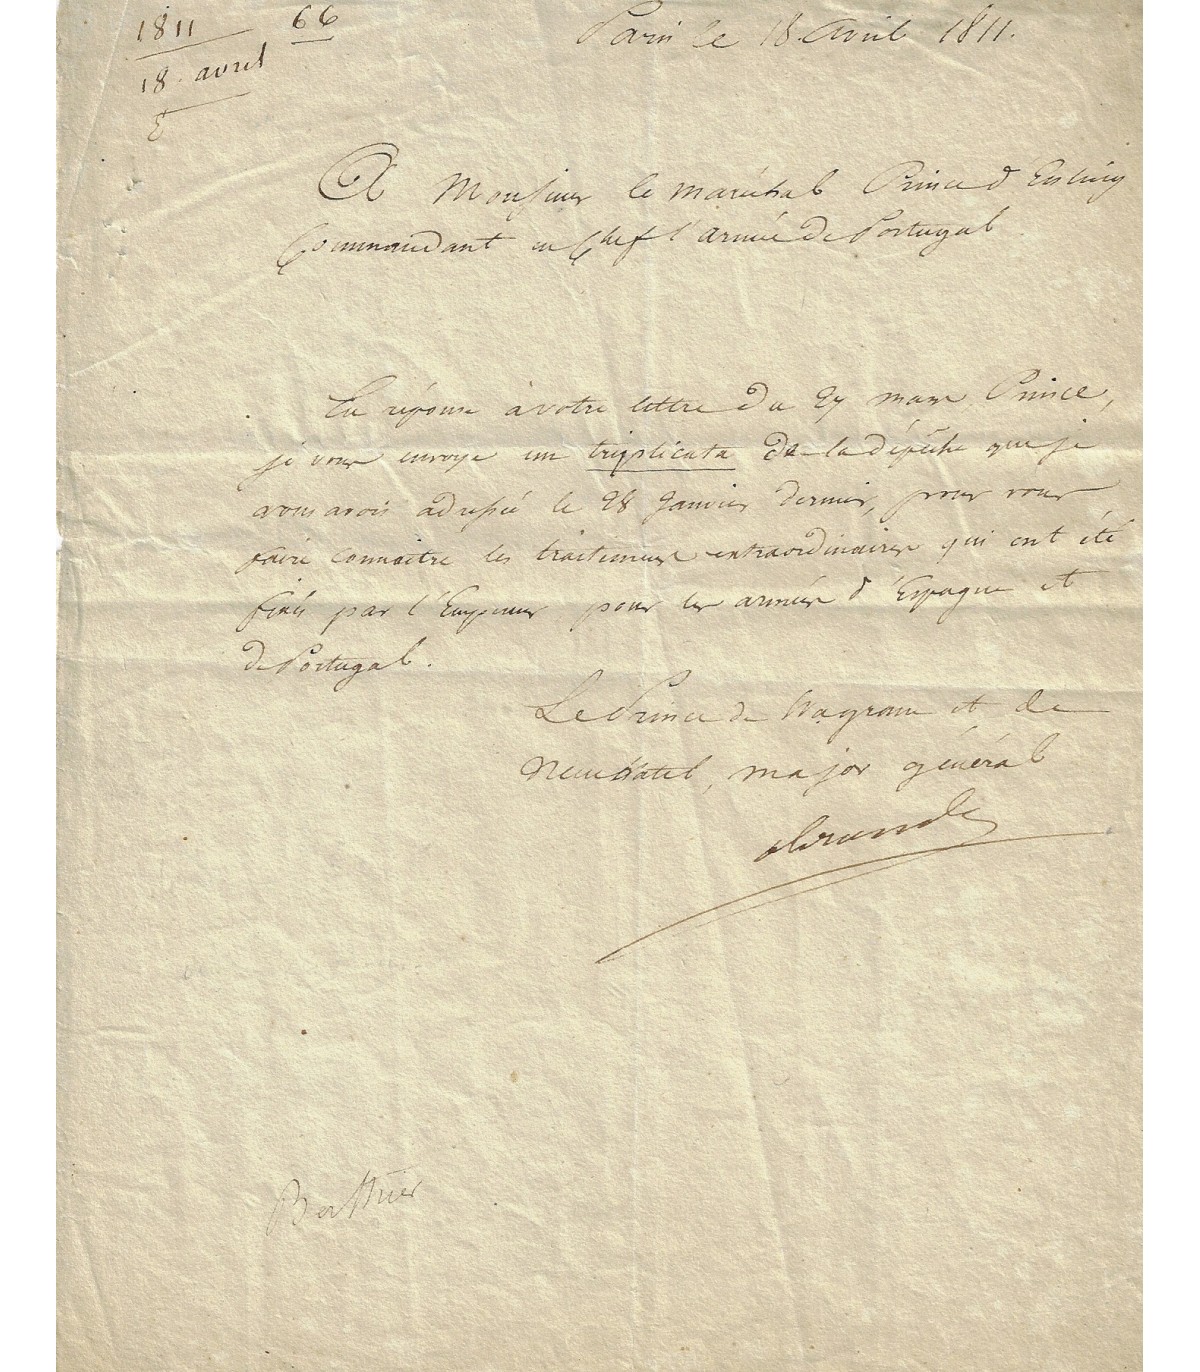 1811 66
18 avril
Paris le 18. avril 1811.
A Monsieur le maréchal Prince d'Essling
Commandant en Chef l'armée de Portugal
En réponse à votre lettre du 27 mars Prince,
je vous envoye un triplicata de la dépêche que je
vous avois adressée le 28 Janvier dernier, pour vous
faire connaitre les traitemens extraordinaires qui ont été
fixés par l'Empereur pour les armées d'Espagne et
de Portugal.
Le Prince de Wagram et de
Neuchatel, major général
Alexandre
Berthier